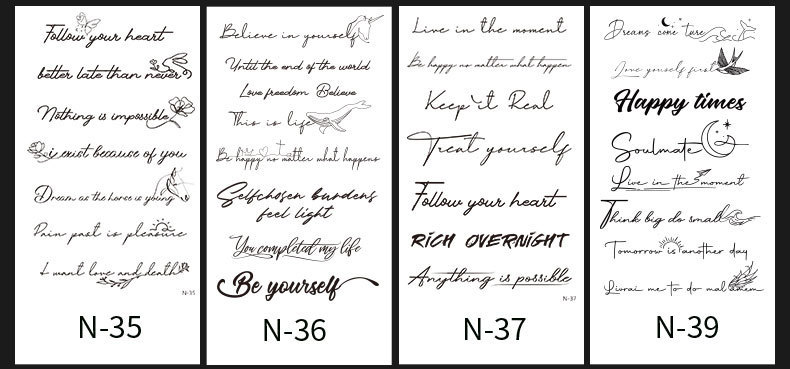 Follow your heart
better late than never
Nothing is impossible
i exist because of you
Dream as the horse is young
Pain past is pleasure
I want love and death
N-35
N-35
Believe in yourself
Until the end of the world
Love freedom Believe
This is life
Be happy no matter what happens
Selfchosen burdens
feel light
You completed my life
Be yourself
N-36
Live in the moment
Be happy no matter what happen
Keep it Real
Treat yourself
Follow your heart
RICH OVERNIGHT
Anything is possible
N-37
N-37
Dreams come ture
Love yourself first
Happy times
Soulmate
Live in the moment
Think big do small
Tomorrow is another day
me to do mal
N-39